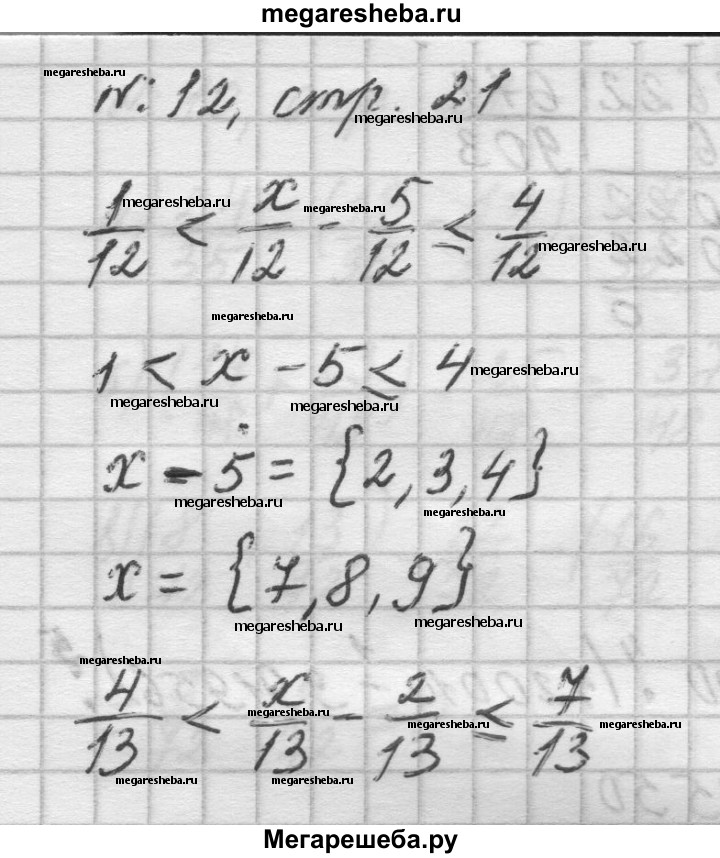 megaresheba.ru
megaresheba.ru
N: 12, стр. 21
megaresheba.ru
1/12 < x/12 - 5/12 ≤ 4/12
megaresheba.ru megaresheba.ru megaresheba.ru
megaresheba.ru
1 < x - 5 ≤ 4
megaresheba.ru
megaresheba.ru megaresheba.ru
x - 5 = {2, 3, 4}
megaresheba.ru megaresheba.ru
x = {7, 8, 9}
megaresheba.ru megaresheba.ru
megaresheba.ru
4/13 < x/13 - 2/13 ≤ 7/13
megaresheba.ru megaresheba.ru megaresheba.ru
megaresheba.ru megaresheba.ru
Мегарешеба.ру